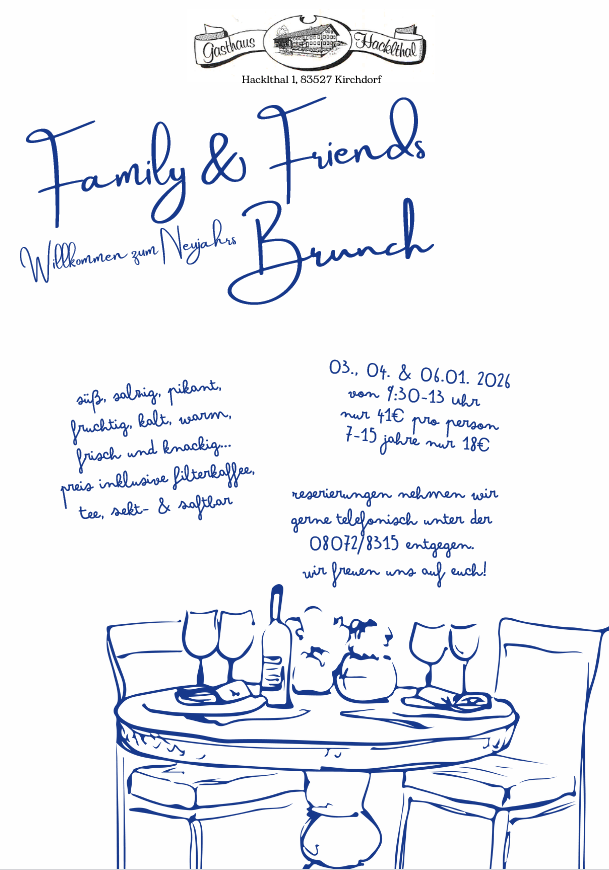 Gasthaus Hacklthal
Hacklthal 1, 83527 Kirchdorf
Family & Friends
Willkommen zum Neujahrs Brunch
süß, salzig, pikant,
fruchtig, kalt, warm,
frisch und knackig...
preis inklusive filterkaffee,
tee, sekt- & saftbar
03., 04. & 06.01. 2026
von 9:30-13 uhr
nur 41€ pro person
7-15 jahre nur 18€
reservierungen nehmen wir
gerne telefonisch unter der
08072/8315 entgegen.
wir freuen uns auf euch!